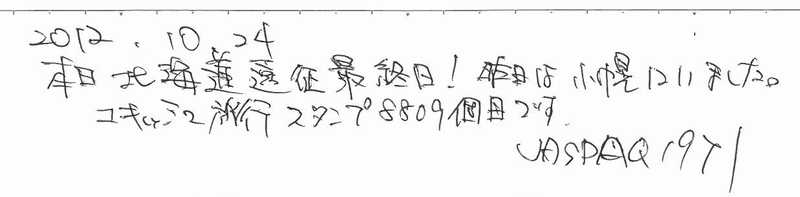 2012.10.24
本日北海道遠征最終日！昨日は小幌にいました。
スタンプ8809個目です
JASDAQ1971